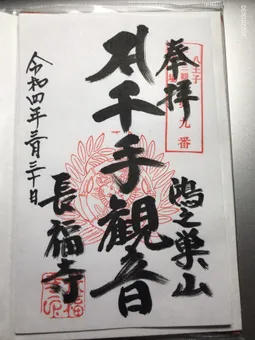 奉拝
八王子
九番
鴻之巣山
千手観音
長福寺
令和四年三月三十日